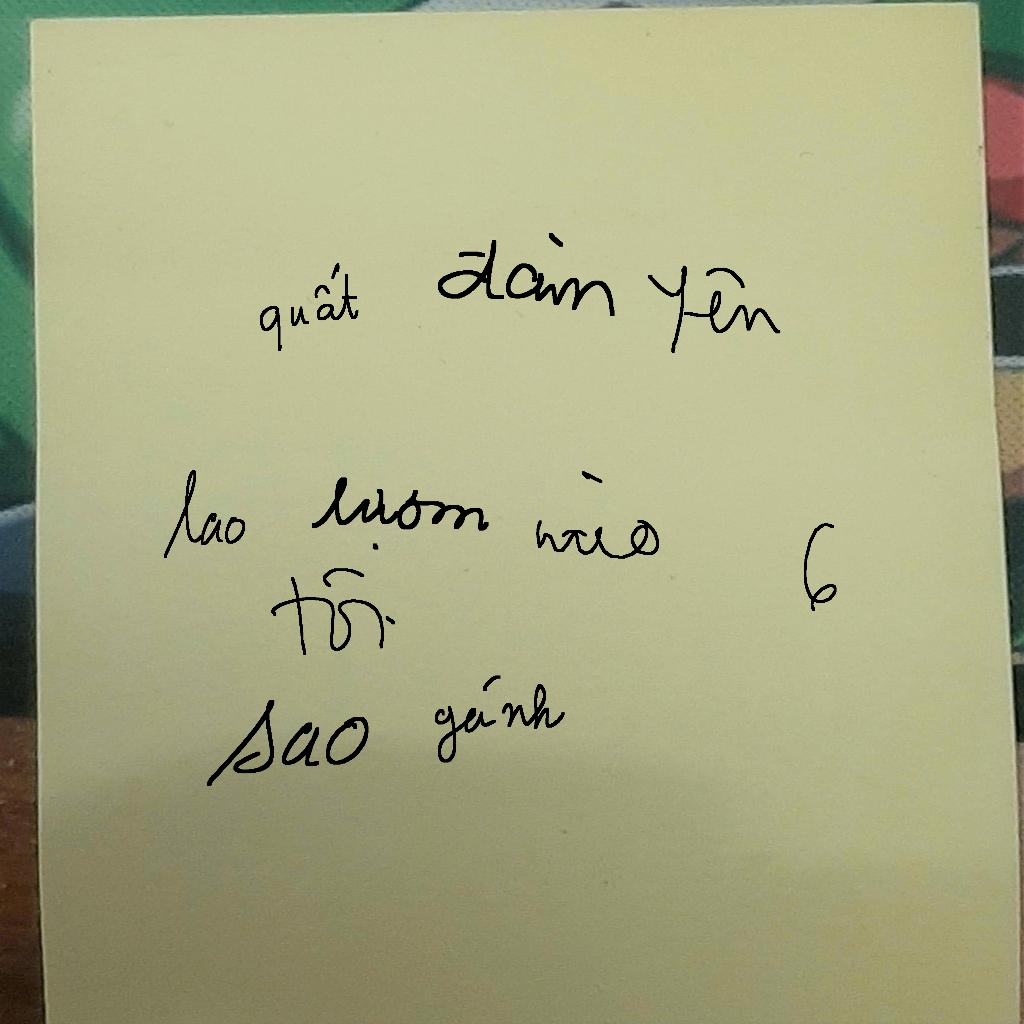 quất đàn yên
lao lượm vào 6
tội
sao gánh